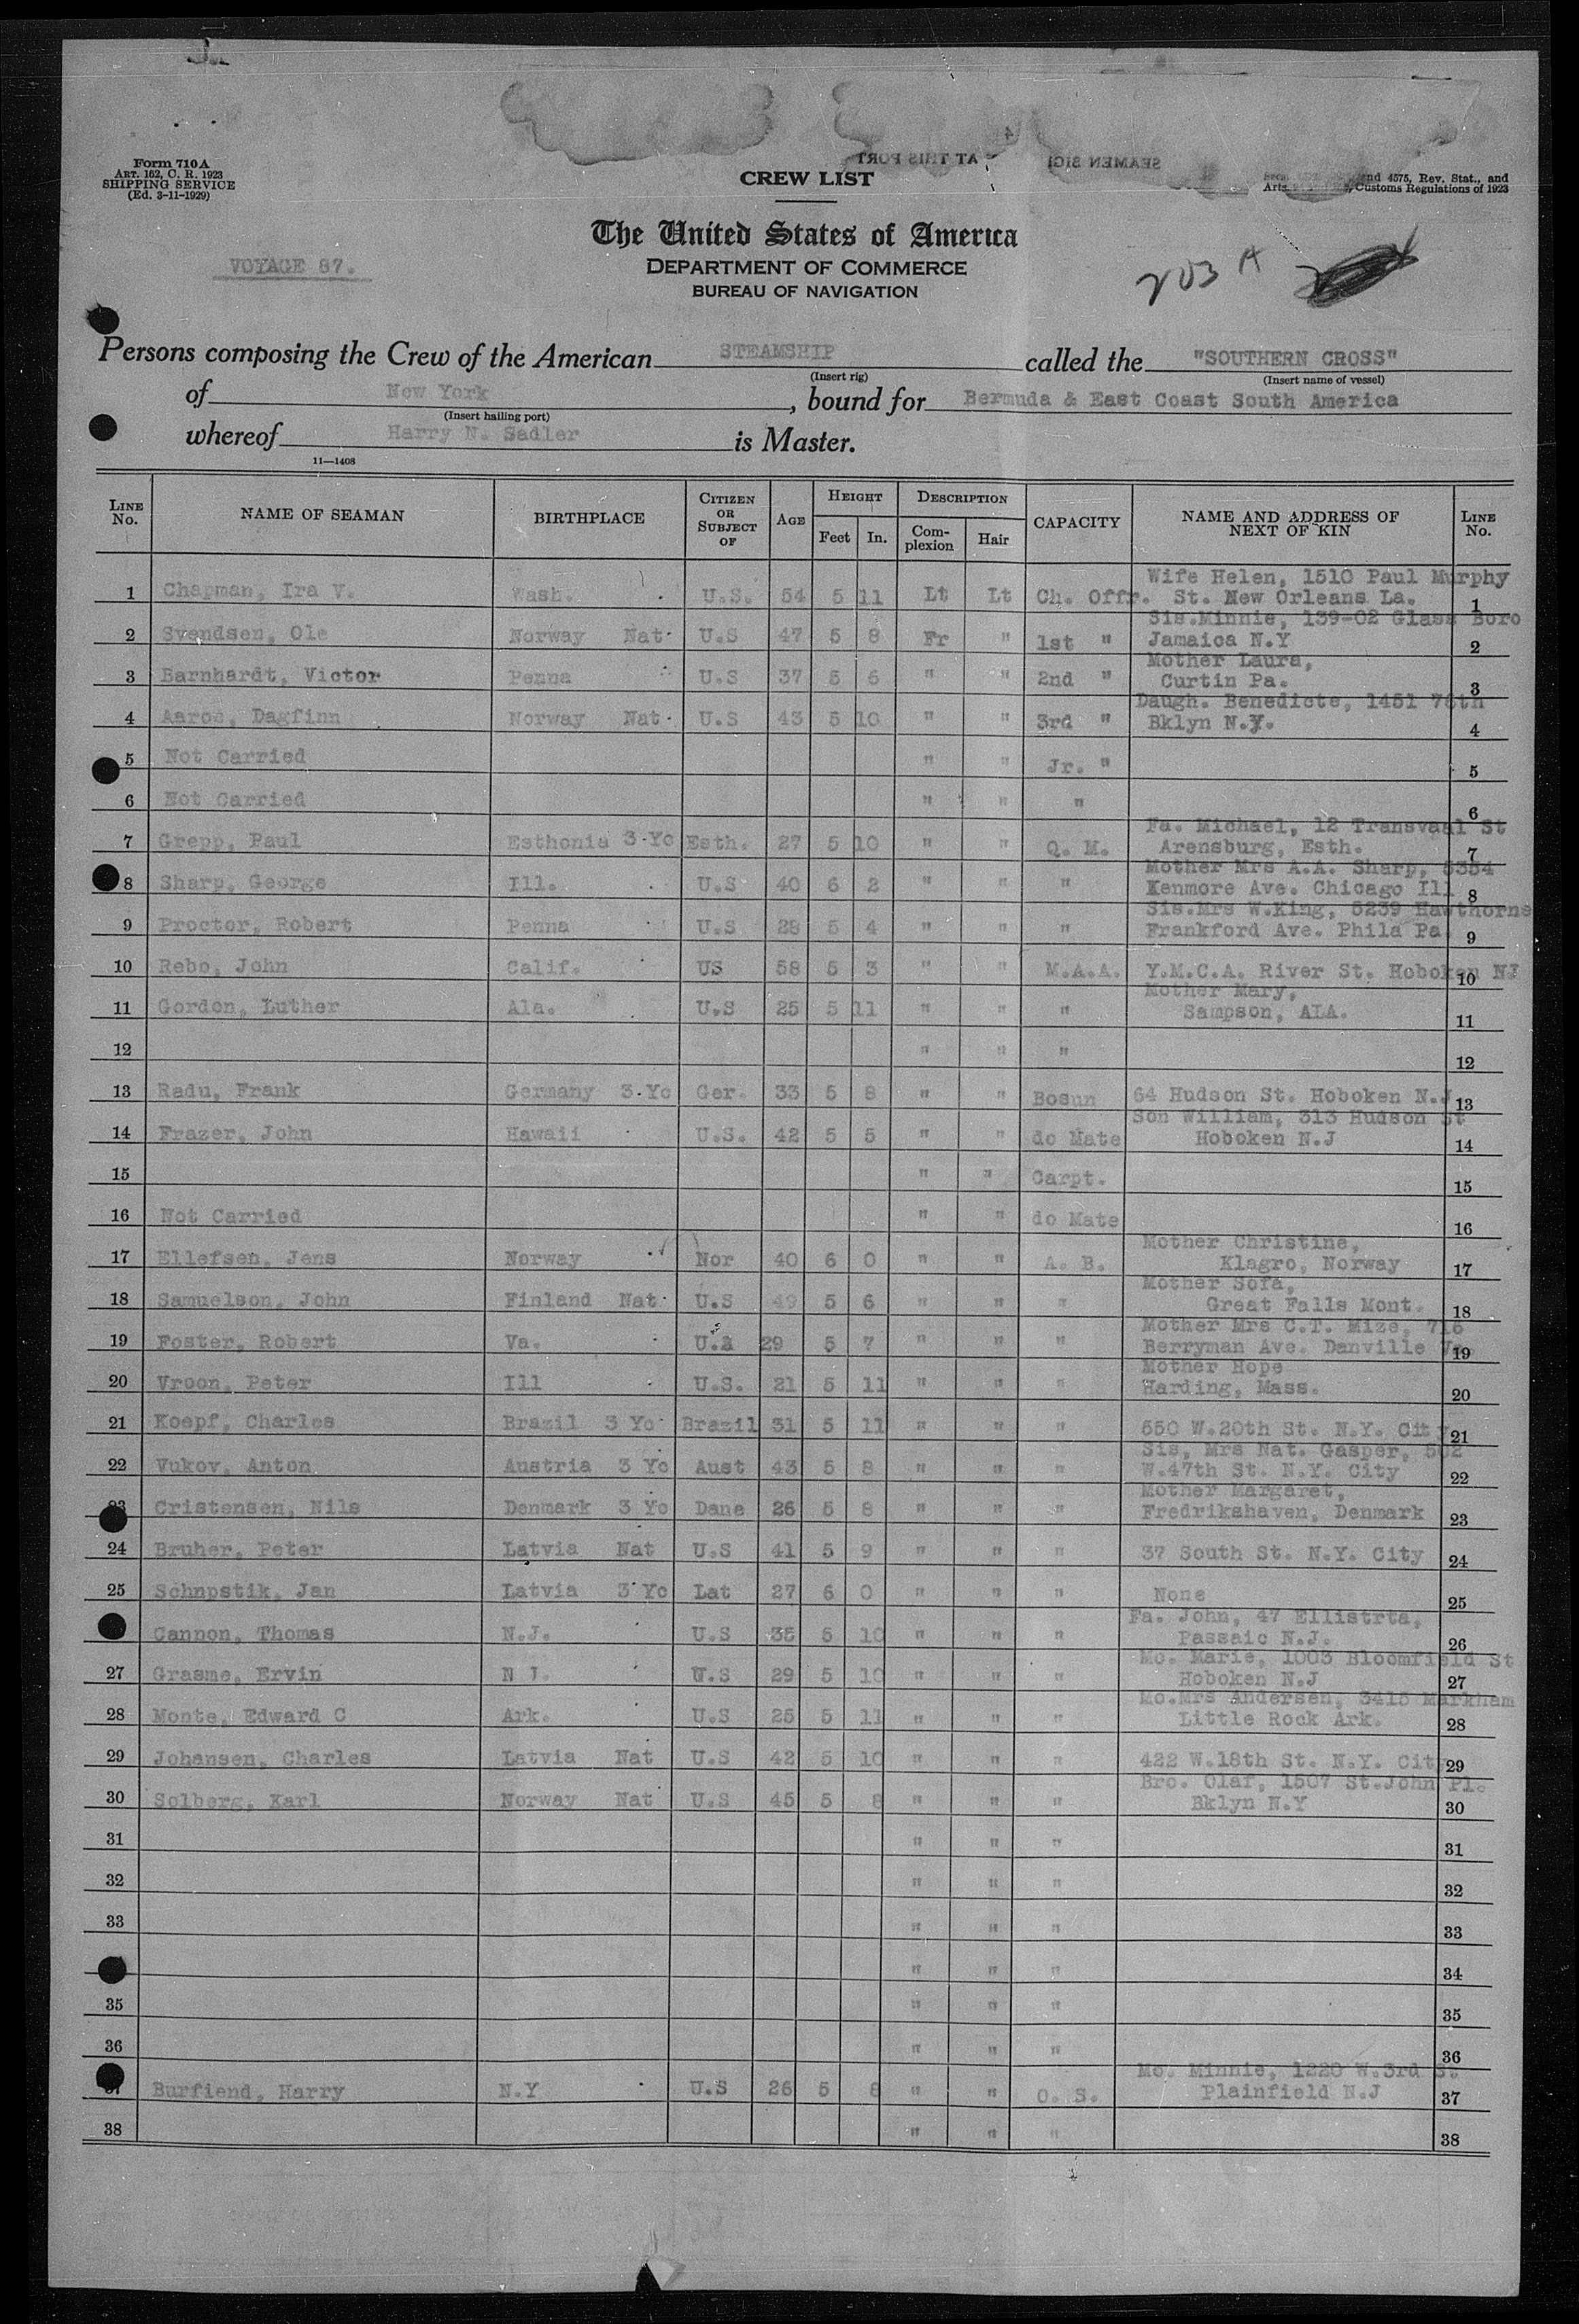 Form 710 A
ART. 162, C. R. 1923
SHIPPING SERVICE
(Ed. 3-11-1929)
AT THIS PORT
SEAMEN SIGI
CREW LIST
and 4575, Rev. Stat., and
Arts. Customs Regulations of 1923
The United States of America
DEPARTMENT OF COMMERCE
BUREAU OF NAVIGATION
VOYAGE 87.
203 A
Persons composing the Crew of the American STEAMSHIP called the "SOUTHERN CROSS"
(Insert rig) (Insert name of vessel)
of New York, bound for Bermuda & East Coast South America
(Insert hailing port)
whereof Harry N. Sadler is Master.
11—1408
LINE No. NAME OF SEAMAN BIRTHPLACE CITIZEN OR SUBJECT OF AGE HEIGHT Feet In. DESCRIPTION Complexion Hair CAPACITY NAME AND ADDRESS OF NEXT OF KIN LINE No.
1 Chapman, Ira V. Wash. U.S. 54 5 11 Lt Lt Ch. Offr. Wife Helen, 1510 Paul Murphy St. New Orleans La. 1
2 Svendsen, Ole Norway Nat U.S 47 5 8 Fr " 1st " Sis.Minnie, 139-02 Glass Boro Jamaica N.Y 2
3 Barnhardt, Victor Penna U.S 37 5 6 " " 2nd " Mother Laura, Curtin Pa. 3
4 Aaroe, Dagfinn Norway Nat U.S 43 5 10 " " 3rd " Daugh. Benedicte, 1451 76th Bklyn N.Y. 4
5 Not Carried " " Jr. " 5
6 Not Carried " " " 6
7 Grepp, Paul Esthonia 3 Yc Esth. 27 5 10 " " Q. M. Fa. Michael, 12 Transvaal St Arensburg, Esth. 7
8 Sharp, George Ill. U.S 40 6 2 " " " Mother Mrs A.A. Sharp, 5354 Kenmore Ave. Chicago Ill 8
9 Proctor, Robert Penna U.S 28 5 4 " " " Sis.Mrs W.King, 5239 Hawthorne Frankford Ave. Phila Pa 9
10 Rebo, John Calif. US 58 5 3 " " M.A.A. Y.M.C.A. River St. Hoboken NJ 10
11 Gordon, Luther Ala. U.S 25 5 11 " " " Mother Mary, Sampson, ALA. 11
12 " " " 12
13 Radu, Frank Germany 3 Yc Ger. 33 5 8 " " Bosun 64 Hudson St. Hoboken N.J 13
14 Frazer, John Hawaii U.S. 42 5 5 " " do Mate Son William, 313 Hudson St Hoboken N.J 14
15 " " Carpt. 15
16 Not Carried " " do Mate 16
17 Ellefsen, Jens Norway Nor 40 6 0 " " A. B. Mother Christine, Klagro, Norway 17
18 Samuelson, John Finland Nat U.S 49 5 6 " " " Mother Sofa, Great Falls Mont. 18
19 Foster, Robert Va. U.S 29 5 7 " " " Mother Mrs C.T. Mize, 716 Berryman Ave. Danville Va. 19
20 Vroon, Peter Ill U.S. 21 5 11 " " " Mother Hope Harding, Mass. 20
21 Koepf, Charles Brazil 3 Yc Brazil 31 5 11 " " " 550 W.20th St. N.Y. City 21
22 Vukov, Anton Austria 3 Yc Aust 43 5 8 " " " Sis, Mrs Nat. Gasper, 502 W.47th St. N.Y. City 22
23 Cristensen, Nils Denmark 3 Yc Dane 26 5 8 " " " Mother Margaret, Fredrikshaven, Denmark 23
24 Bruher, Peter Latvia Nat U.S 41 5 9 " " " 37 South St. N.Y. City 24
25 Schnpstik, Jan Latvia 3 Yc Lat 27 6 0 " " " None 25
Cannon, Thomas N.J. U.S 35 5 10 " " " Fa. John, 47 Ellistrta, Passaic N.J. 26
27 Grasme, Ervin N J. U.S 29 5 10 " " " Mo. Marie, 1003 Bloomfield St Hoboken N.J 27
28 Monte, Edward C Ark. U.S 25 5 11 " " " Mo.Mrs Andersen, 3415 Markham Little Rock Ark. 28
29 Johansen, Charles Latvia Nat U.S 42 5 10 " " " 422 W.18th St. N.Y. City 29
30 Solberg, Karl Norway Nat U.S 45 5 8 " " " Bro. Olaf, 1507 St.John Pl. Bklyn N.Y 30
31 " " " 31
32 " " " 32
33 " " " 33
" " " 34
35 " " " 35
36 " " " 36
37 Burfiend, Harry N.Y U.S 26 5 8 " " O. S. Mo. Minnie, 1220 W.3rd St Plainfield N.J 37
38 " " " 38